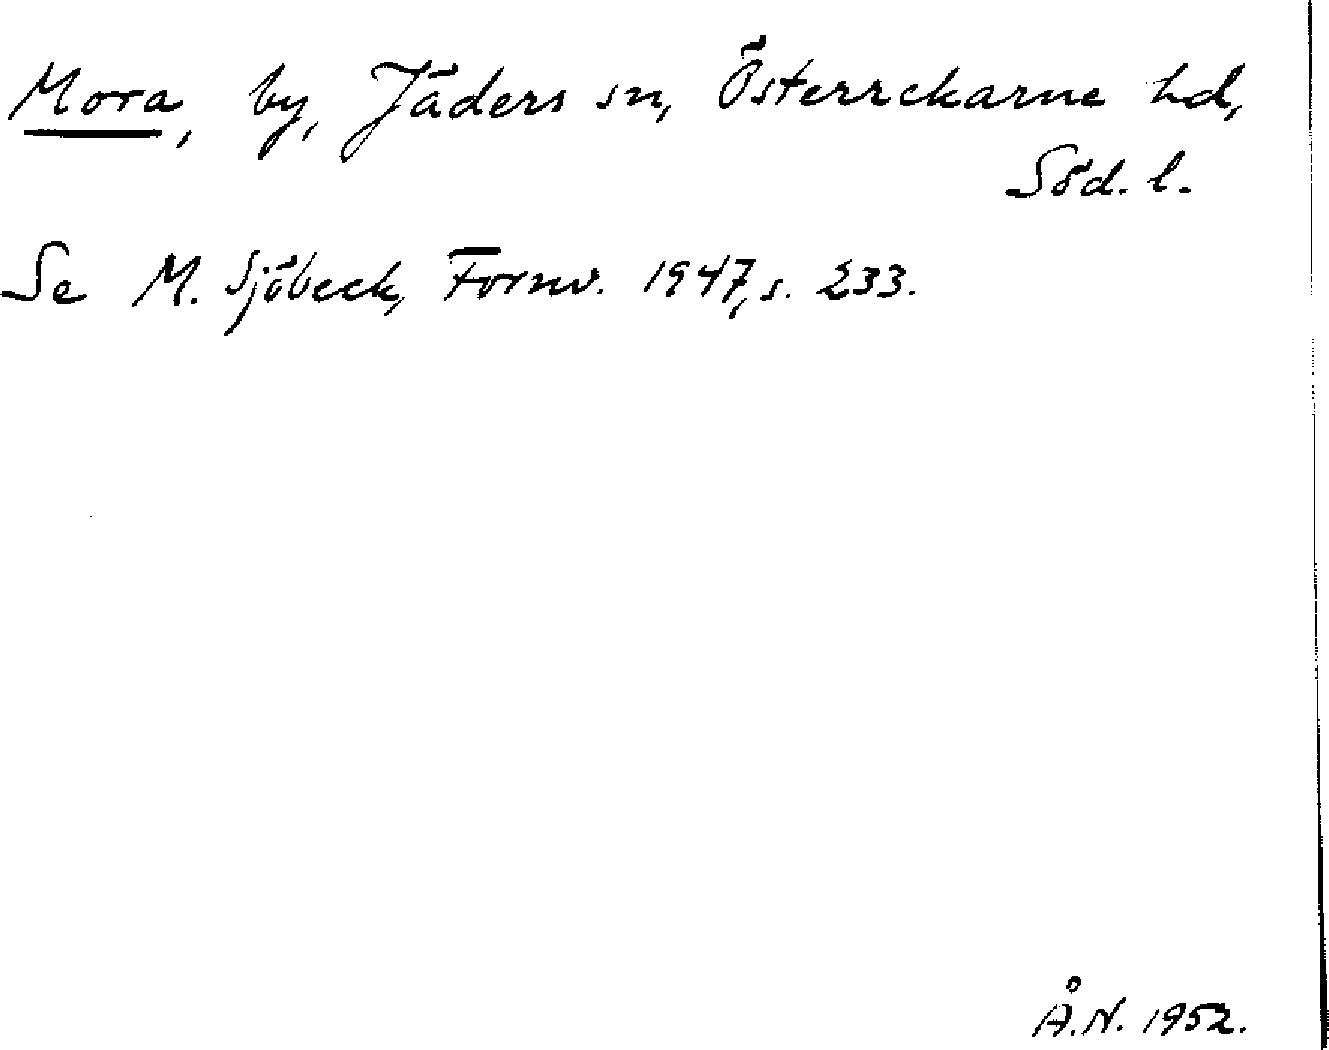 Mora, by, Jäders sn, Österrekarne hd,
Söd. l.
Se M. Sjöbeck, Fornv. 1947, s. 233.
Å.N. 1952.